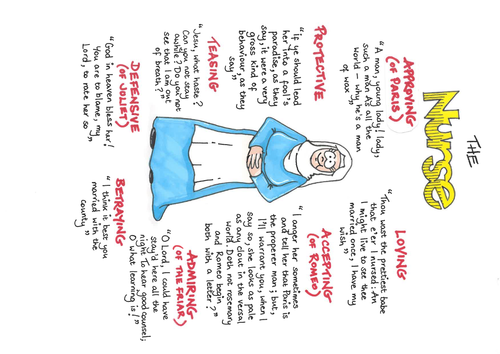 THE
Nurse
APPROVING
(OF PARIS)
"A man, young lady! lady,
such a man As all the
world - why he's a man
of wax"
PROTECTIVE
"if ye should lead
her into a fool's
paradise, as they
say, it were a very
gross kind of
behaviour, as they
say"
TEASING
"Jesu, what haste?
Can you not stay
awhile? Do you not
see that I am out
of breath?"
DEFENSIVE
(OF JULIET)
"God in heaven bless her!
You are to blame, my
Lord, to rate her so"
LOVING
Thou wast the prettiest babe
that e'er I nursed: An
I might live to see thee
married once, I have my
wish"
ACCEPTING
(OF ROMEO)
"I anger her sometimes
and tell her that Paris is
the properer man; but,
I'll warrant you, when I
say so, she looks as pale
as any clout in the versal
world. Doth not rosemary
and Romeo begin
both with a letter?"
ADMIRING
(OF THE FRIAR)
"O Lord, I could have
stay'd here all the
night To hear good counsel;
O what learning is!"
BETRAYING
"I think it best you
married with the
county"